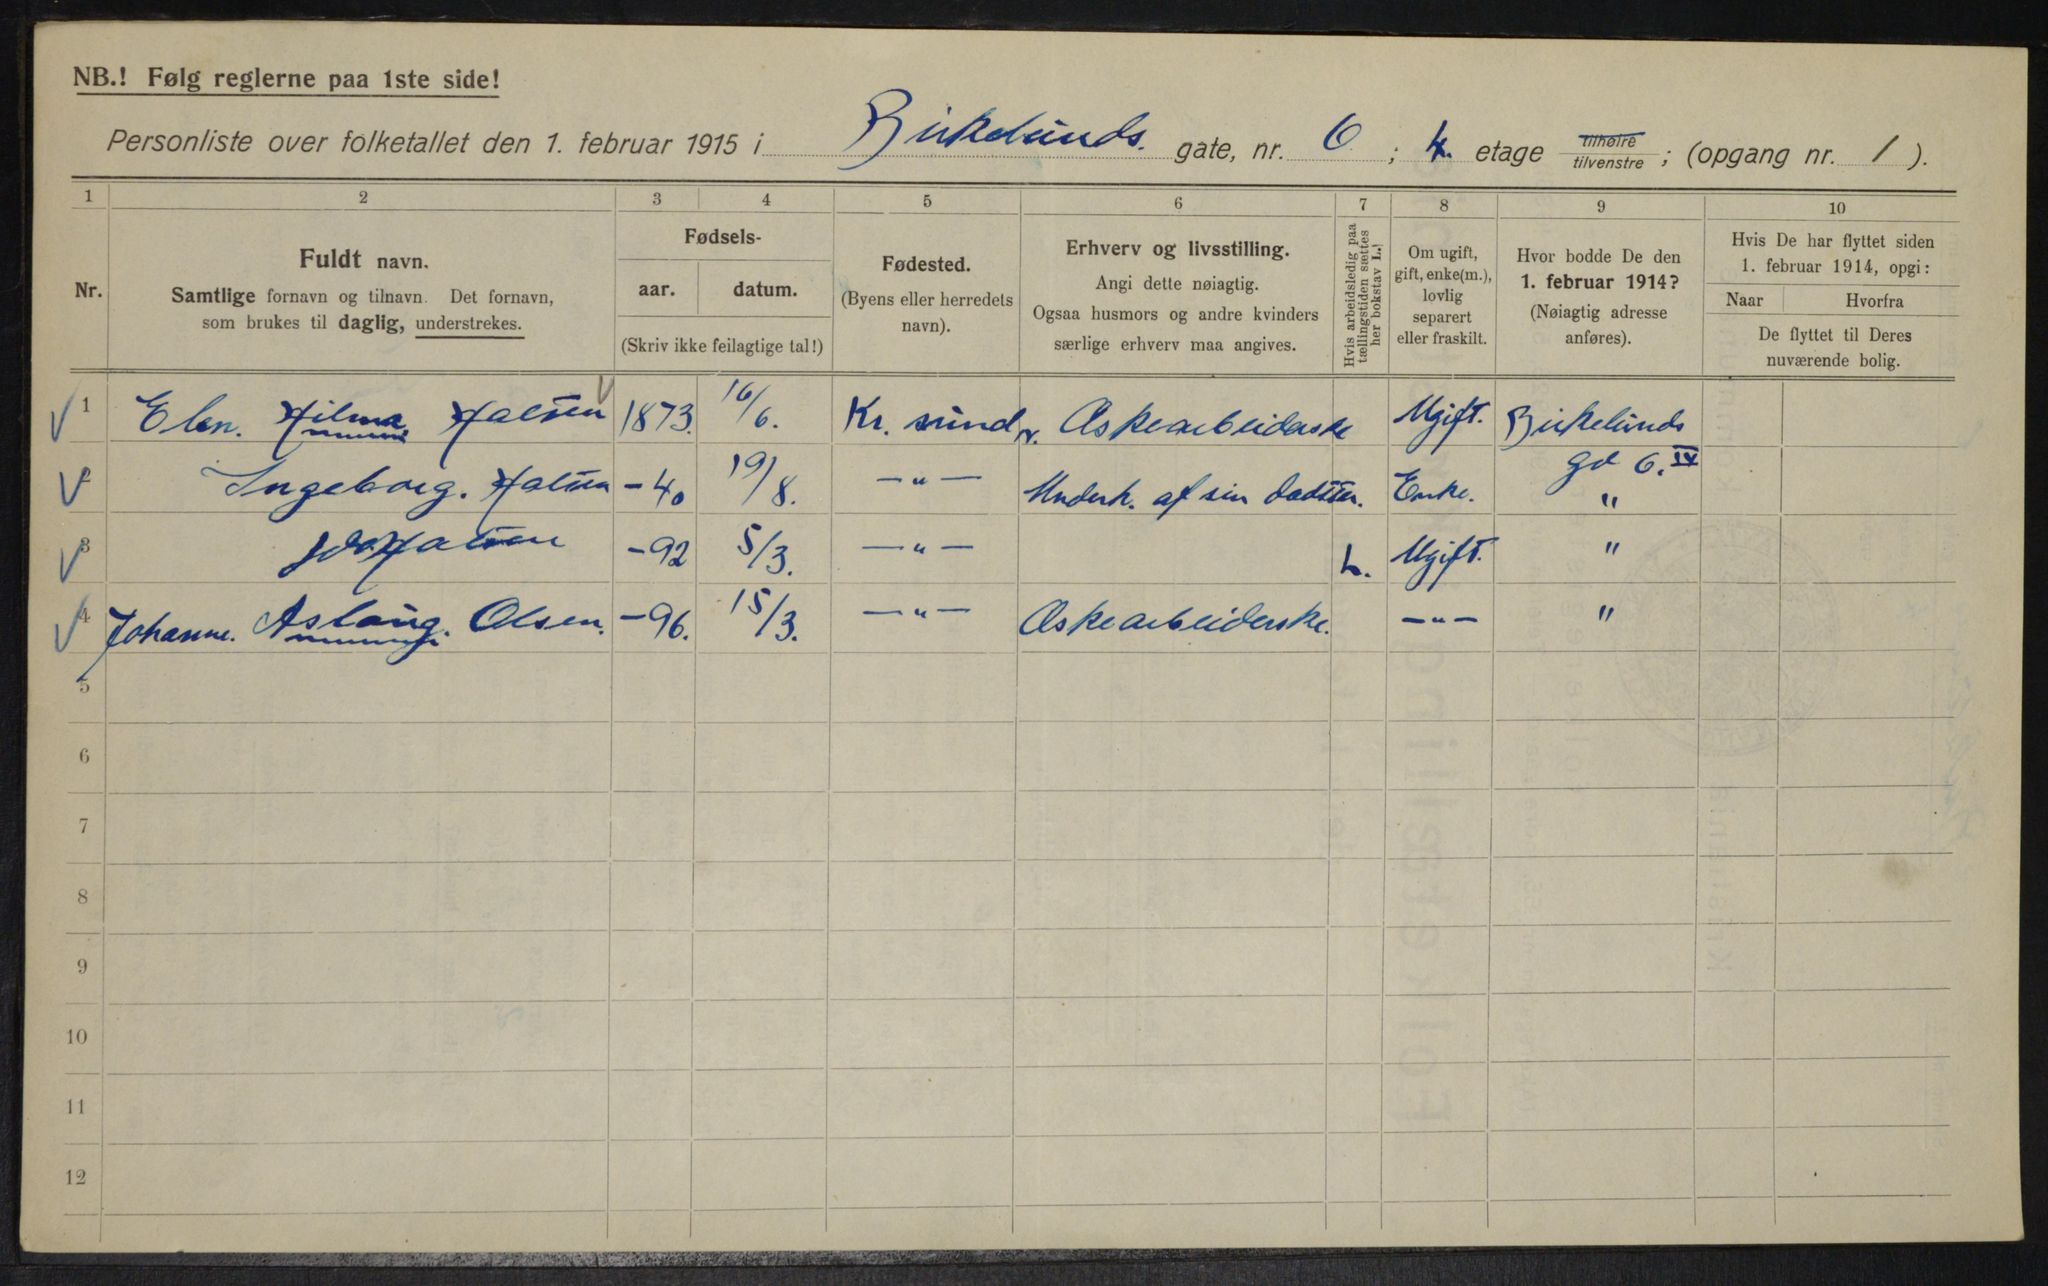 NB.! Følg reglerne paa 1ste side!
Personliste over folketallet den 1. februar 1915 i Birkelunds. gate, nr. 6 ; 4. etage tilhøire tilvenstre ; (opgang nr. 1 ).
1 2 3 4 5 6 7 8 9 10
Nr.
Fuldt navn.
Samtlige fornavn og tilnavn. Det fornavn,
som brukes til daglig, understrekes.
Fødsels-
aar. datum.
(Skriv ikke feilagtige tal!)
Fødested.
(Byens eller herredets
navn).
Erhverv og livsstilling.
Angi dette nøiagtig.
Ogsaa husmors og andre kvinders
særlige erhverv maa angives.
Hvis arbeidsledig paa
tællingstiden sættes
her bokstav L.!
Om ugift,
gift, enke(m.),
lovlig
separert
eller fraskilt.
Hvor bodde De den
1. februar 1914?
(Nøiagtig adresse
anføres).
Hvis De har flyttet siden
1. februar 1914, opgi:
Naar Hvorfra
De flyttet til Deres
nuværende bolig.
1 Elen. Hilma. Halsen 1873. 16/6. Kr. sund N. Æskearbeiderske Ugift. Birkelunds
gd 6. IV
2 Ingeborg. Halsen -40 19/8. —"— Underh. af sin dadtter. Enke. "
3 Halsen -92 5/3. —"— L. Ugift. "
4 Johanne. Aslaug. Olsen. -96. 15/3. —"— Æskearbeiderske. —"— "
5
6
7
8
9
10
11
12